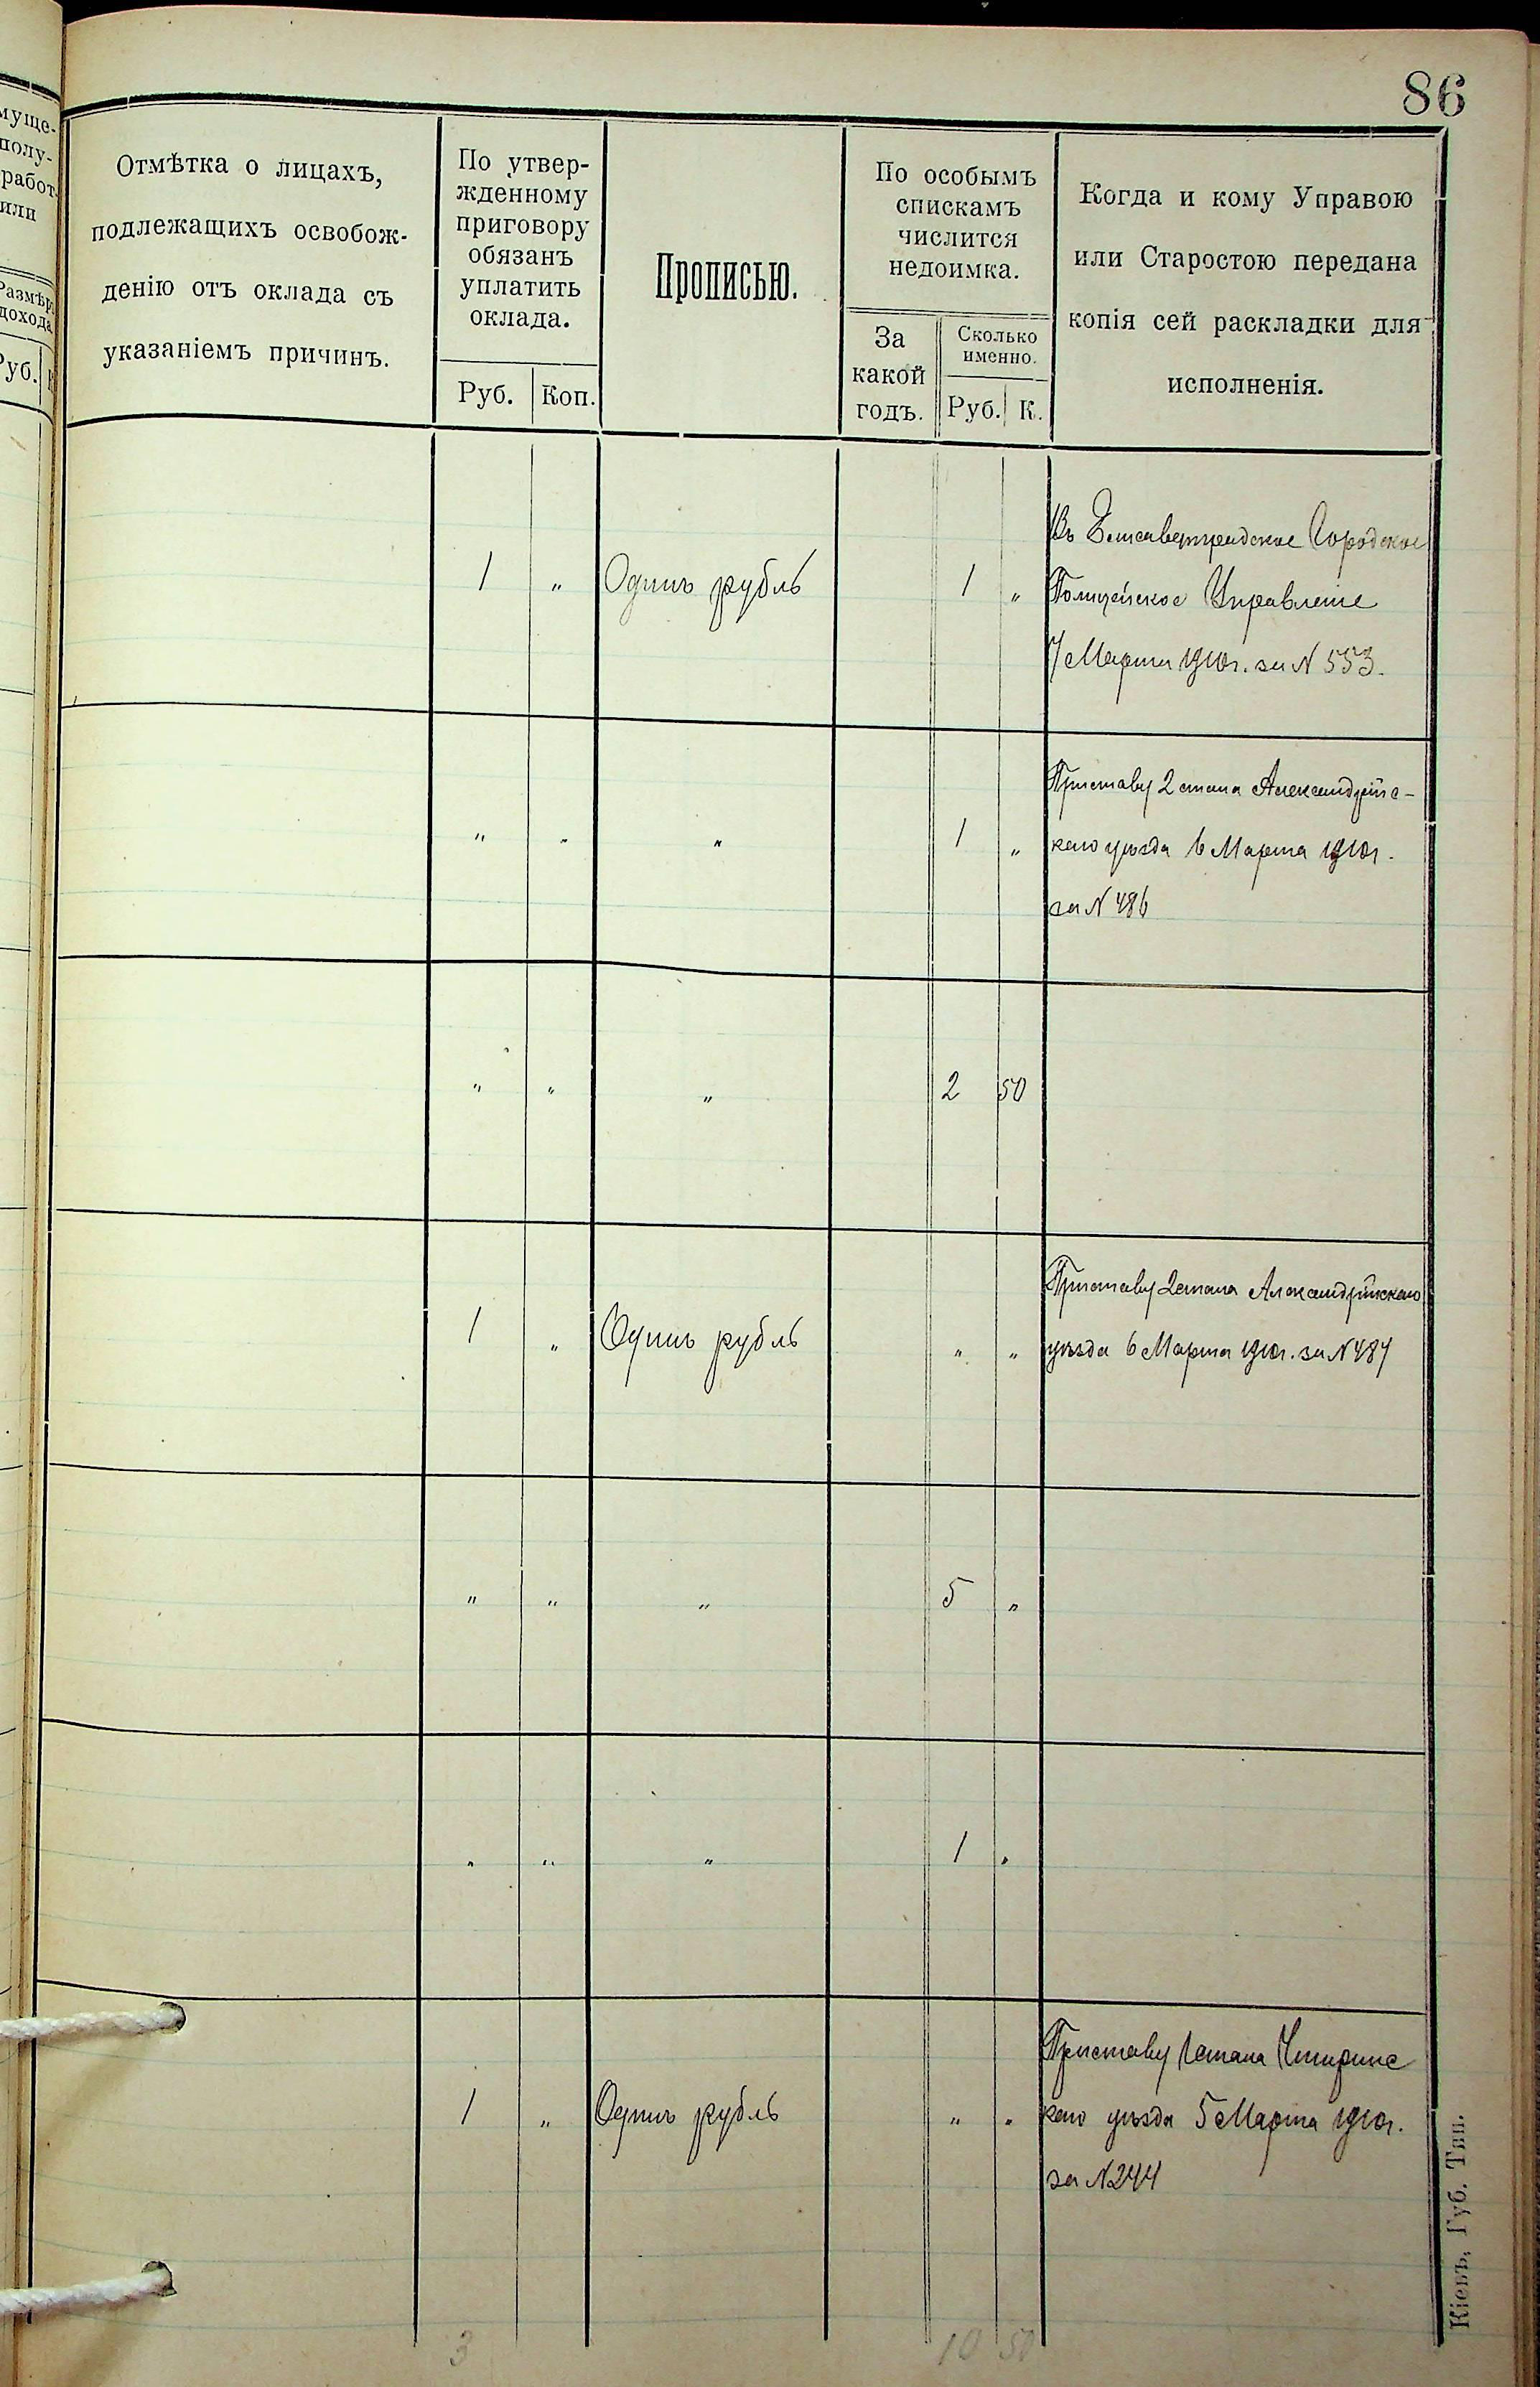 86
муще-
полу-
работ.
или
Размѣръ
дохода
Руб.
Отмѣтка о лицахъ,
подлежащихъ освобож-
денію отъ оклада съ
указаніемъ причинъ.
По утвер-
жденному
приговору
обязанъ
уплатить
оклада.
Руб. Коп.
Прописью.
По особымъ
спискамъ
числится
недоимка.
За
какой
годъ.
Сколько
именно.
Руб. К.
Когда и кому Управою
или Старостою передана
копія сей раскладки для
исполненія.
1 " Одинъ рубль 1 "
Въ Елисаветградское Городское
Полицейское Управленіе
7 Марта 1910г. за N 553.
" " " 1 "
Приставу 2 стана Александрійс-
каго уѣзда 6 Марта 1910г.
за N 486
" " " 2 50
1 " Одинъ рубль " "
Приставу 2 стана Александрійскаго
уѣзда 6 Марта 1910г. за N 487
" " " 5 "
" " " 1 "
1 " Одинъ рубль " "
Приставу 1 стана Чигиринс
каго уѣзда 5 Марта 1910г.
за N 244
3 10 50
Кіевъ, Губ. Тип.